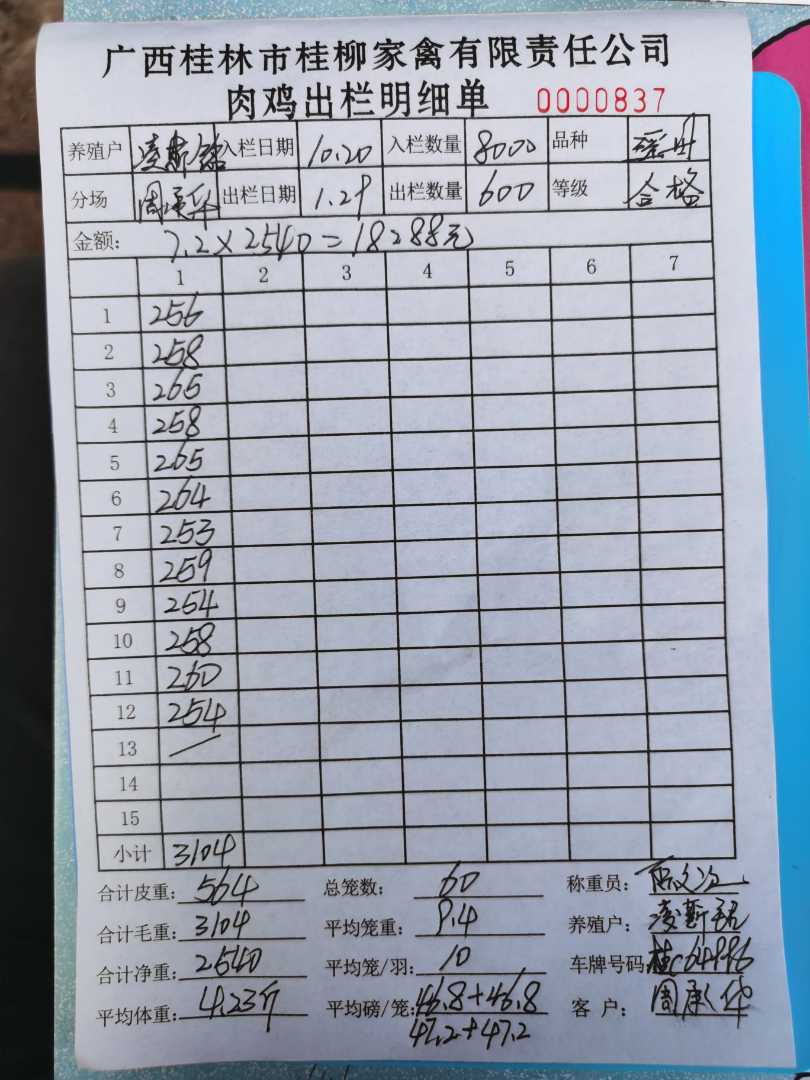 广西桂林市桂柳家禽有限责任公司
肉鸡出栏明细单 0000837
养殖户 凌斯 入栏日期 10.20 入栏数量 8000 品种 瑶
分场 周承华 出栏日期 1.29 出栏数量 600 等级 合格
金额： 7.2×2540=18288元
1 2 3 4 5 6 7
1 256
2 258
3 265
4 258
5 265
6 264
7 253
8 259
9 254
10 258
11 260
12 254
13 /
14
15
小计 3104
合计皮重： 564 总笼数： 60 称重员：
合计毛重： 3104 平均笼重： 9.4 养殖户： 凌斯
合计净重： 2540 平均笼/羽： 10 车牌号码 桂C64996
平均体重： 4.23斤 平均磅/笼： 46.8+46.8 客 户： 周承华
47.2+47.2